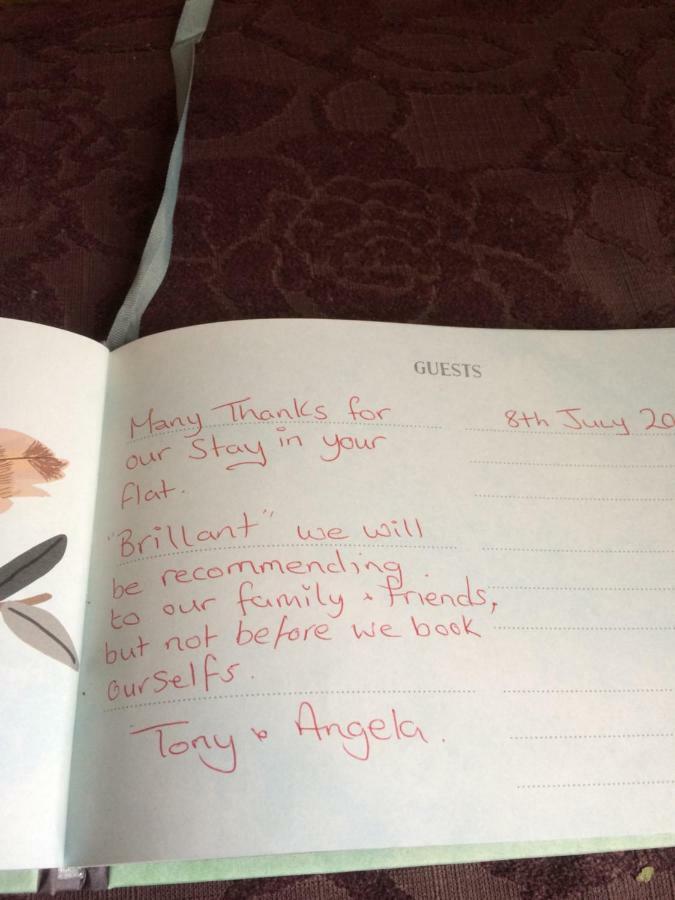 GUESTS
Many Thanks for 8th July 20
our Stay in your
flat.
"Brillant" we will
be recommending
to our family & friends,
but not before we book
ourselfs.
Tony & Angela.